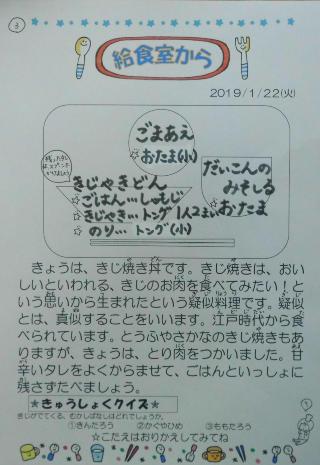 ③
給食室から
2019/1/22(火)
ごまあえ
おたま(小)
きじやきどん
☆ごはん…しゃもじ
☆きじやき…トング 1人2まい
☆のり…トング(小)
だいこんの
みそしる
おたま
きょうは、きじ焼き丼です。きじ焼きは、おい
しいといわれる、きじのお肉を食べてみたい！と
いう思いから生まれたという疑似料理です。疑似
とは、真似することをいいます。江戸時代から食
べられています。とうふやさかなのきじ焼きもあ
りますが、きょうは、とり肉をつかいました。甘
辛いタレをよくからませて、ごはんといっしょに
残さずたべましょう。
★きゅうしょくクイズ★
きじがでてくる、むかしばなしはどれでしょうか。
①きんたろう ②かぐやひめ ③ももたろう
☆こたえはおりかえしてみてね